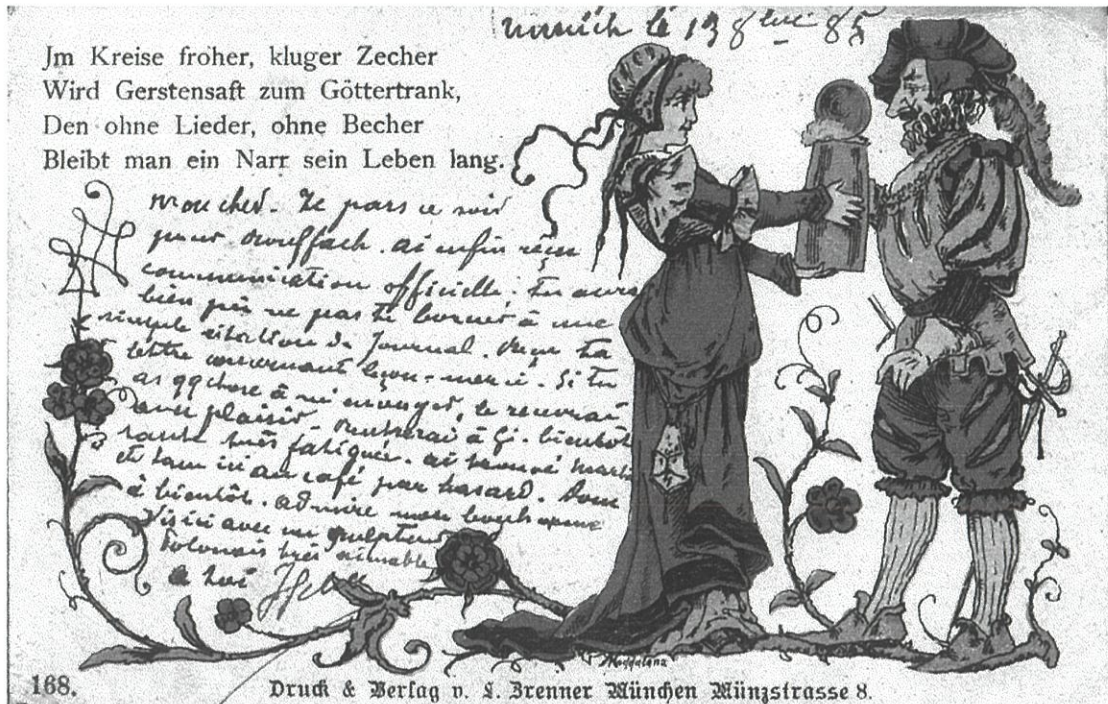 le 13 8bre 85
Jm Kreise froher, kluger Zecher
Wird Gerstensaft zum Göttertrank,
Den ohne Lieder, ohne Becher
Bleibt man ein Narr sein Leben lang.
mon cher. Je pars ce soir
pour Rouffach. ai enfin reçu
communication officielle; tu
bien pu ne pas te borner à une
simple citation du Journal. Reçu ta
lettre concernant leçon-merci. Si tu
as qqchose à m'envoyer, le recevrai
avec plaisir. Rentrerai à bientôt
très fatiguée. ai trouvé
et ici au café par hasard. Donc
à bientôt. admire mon
Vis ici avec un sculpteur
Polonais très aimable
à toi
Maddalena
168.
Druck & Verlag v. L. Zrenner München Münzstrasse 8.